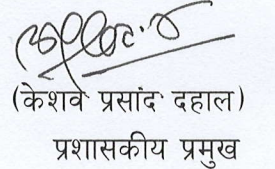 (केशव प्रसांद दहाल)
प्रशासकीय प्रमुख